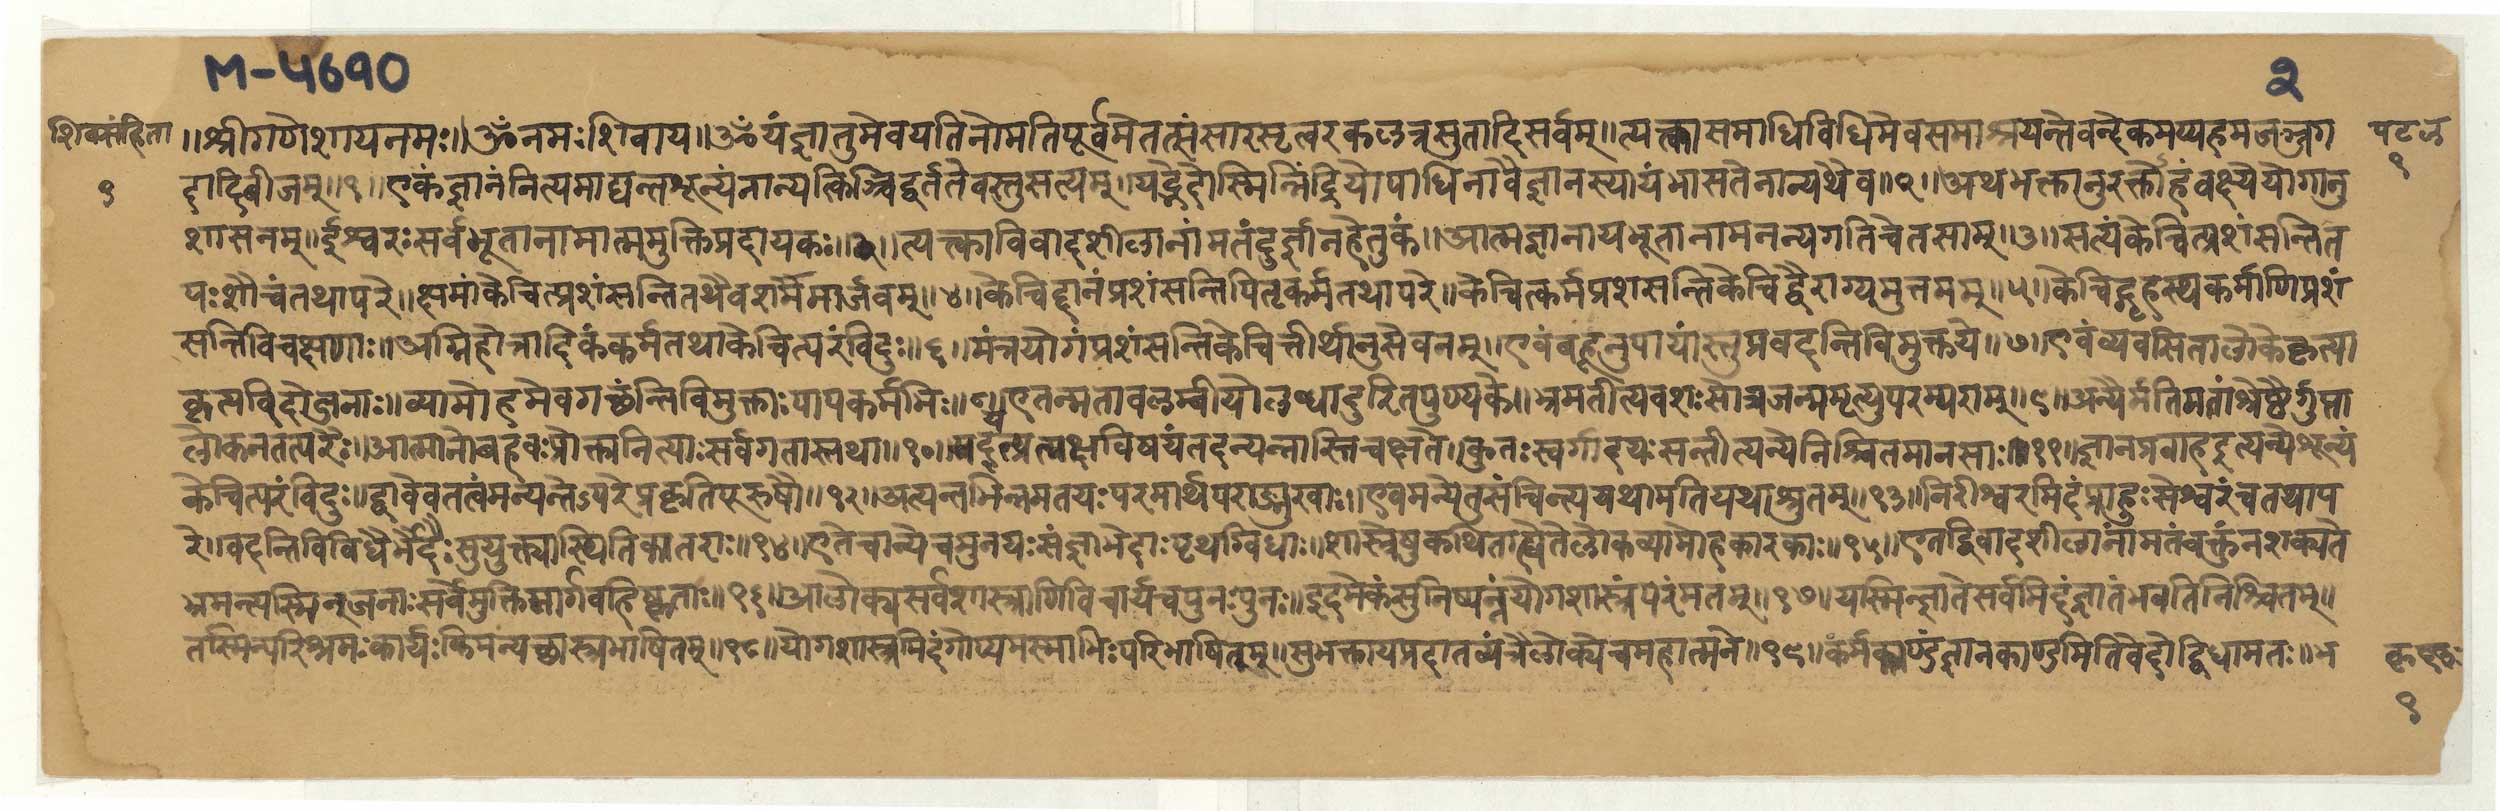 M-4690
२
शिवसंहिता
१
पटल
१
॥श्रीगणेशायनमः॥ॐनमःशिवाय॥ॐयंज्ञातुमेवयतिनोमतिपूर्वमेतत्संसारसृत्वरकलत्रसुतादिसर्वम्॥त्यक्त्वासमाधिविधिमेवसमाश्रयन्तेवन्देकमप्यहमजञ्जग
दादिबीजम्॥१॥एकंज्ञानंनित्यमाद्यन्तशून्यंनान्यत्किञ्चिद्वर्ततेवस्तुसत्यम्॥यद्भेदोस्मिन्निंद्रियोपाधिनावैज्ञानस्यायंभासतेनान्यथैव॥२॥अथभक्तानुरक्तोहंवक्ष्येयोगानु
शासनम्॥ईश्वरःसर्वभूतानामात्ममुक्तिप्रदायकः॥२॥त्यक्त्वाविवादशीलानांमतंदुर्ज्ञानहेतुकं॥आत्मज्ञानायभूतानामनन्यगतिचेतसाम्॥३॥सत्यंकेचित्प्रशंसन्तित
पःशौचंतथापरे॥क्षमांकेचित्प्रशंसन्तितथैवशममार्जवम्॥४॥केचिद्दानंप्रशंसन्तिपितृकर्मतथापरे॥केचित्कर्मप्रशसन्तिकेचिद्वैराग्यमुत्तमम्॥५॥केचिद्गृहस्थकर्माणिप्रशं
सन्तिविचक्षणाः॥अग्निहोत्रादिकंकर्मतथाकेचित्परंविदुः॥६॥मंत्रयोगंप्रशंसन्तिकेचित्तीर्थानुसेवनम्॥एवंबहूनुपायांस्तुप्रवदन्तिविमुक्तये॥७॥एवंव्यवसितालोकेकृत्या
कृत्यविदोजनाः॥व्यामोहमेवगच्छंन्तिविमुक्ताःपापकर्मभिः॥८॥एतन्मतावलम्बीयोलब्धादुरितपुण्यके॥भ्रमतीत्यवशःसोत्रजन्ममृत्युपरम्पराम्॥९॥अन्यैर्मतिमतांश्रेष्ठैर्गुप्ता
लोकनतत्परैः॥आत्मानोबहवःप्रोक्तानित्याःसर्वगतास्तथा॥१०॥यद्यत्प्रत्यक्षविषयंतदन्यन्नास्तिचक्षते॥कुतःस्वर्गादयःसन्तीत्यन्येनिश्चितमानसाः॥११॥ज्ञानप्रवाहइत्यन्येशून्यं
केचित्परंविदुः॥द्वावेवतत्वंमन्यन्तेऽपरेप्रकृतिपूरुषौ॥१२॥अत्यन्तभिन्नमतयःपरमार्थपराङ्मुखाः॥एवमन्येतुसंचिन्त्ययथामतियथाश्रुतम्॥१३॥निरीश्वरमिदंप्राहुःसेश्वरंचतथाप
रे॥वदन्तिविविधैर्भेदैःसुयुक्त्यास्थितिकातराः॥१४॥एतेचान्येचमुनयःसंज्ञाभेदाःपृथग्विधाः॥शास्त्रेषुकथिताह्येतेलोकव्यामोहकारकाः॥१५॥एतद्विवादशीलानांमतंवक्तुंनशक्यते
भ्रमन्त्यस्मिन्जनाःसर्वेमुक्तिमार्गबहिष्कृताः॥१६॥आलोक्यसर्वशास्त्राणिविचार्यचपुनःपुनः॥इदमेकंसुनिष्पन्नंयोगशास्त्रंपरंमतम्॥१७॥यस्मिन्ज्ञातेसर्वमिदंज्ञातंभवतिनिश्चितम्॥
तस्मिन्परिश्रमःकार्यःकिमन्यच्छास्त्रभाषितम्॥१८॥योगशास्त्रमिदंगोप्यमस्माभिःपरिभाषितम्॥सुभक्तायप्रदातव्यंत्रैलोक्येचमहात्मने॥१९॥कर्मकाण्डंज्ञानकाण्डमितिवेदोद्विधामतः॥भ
१